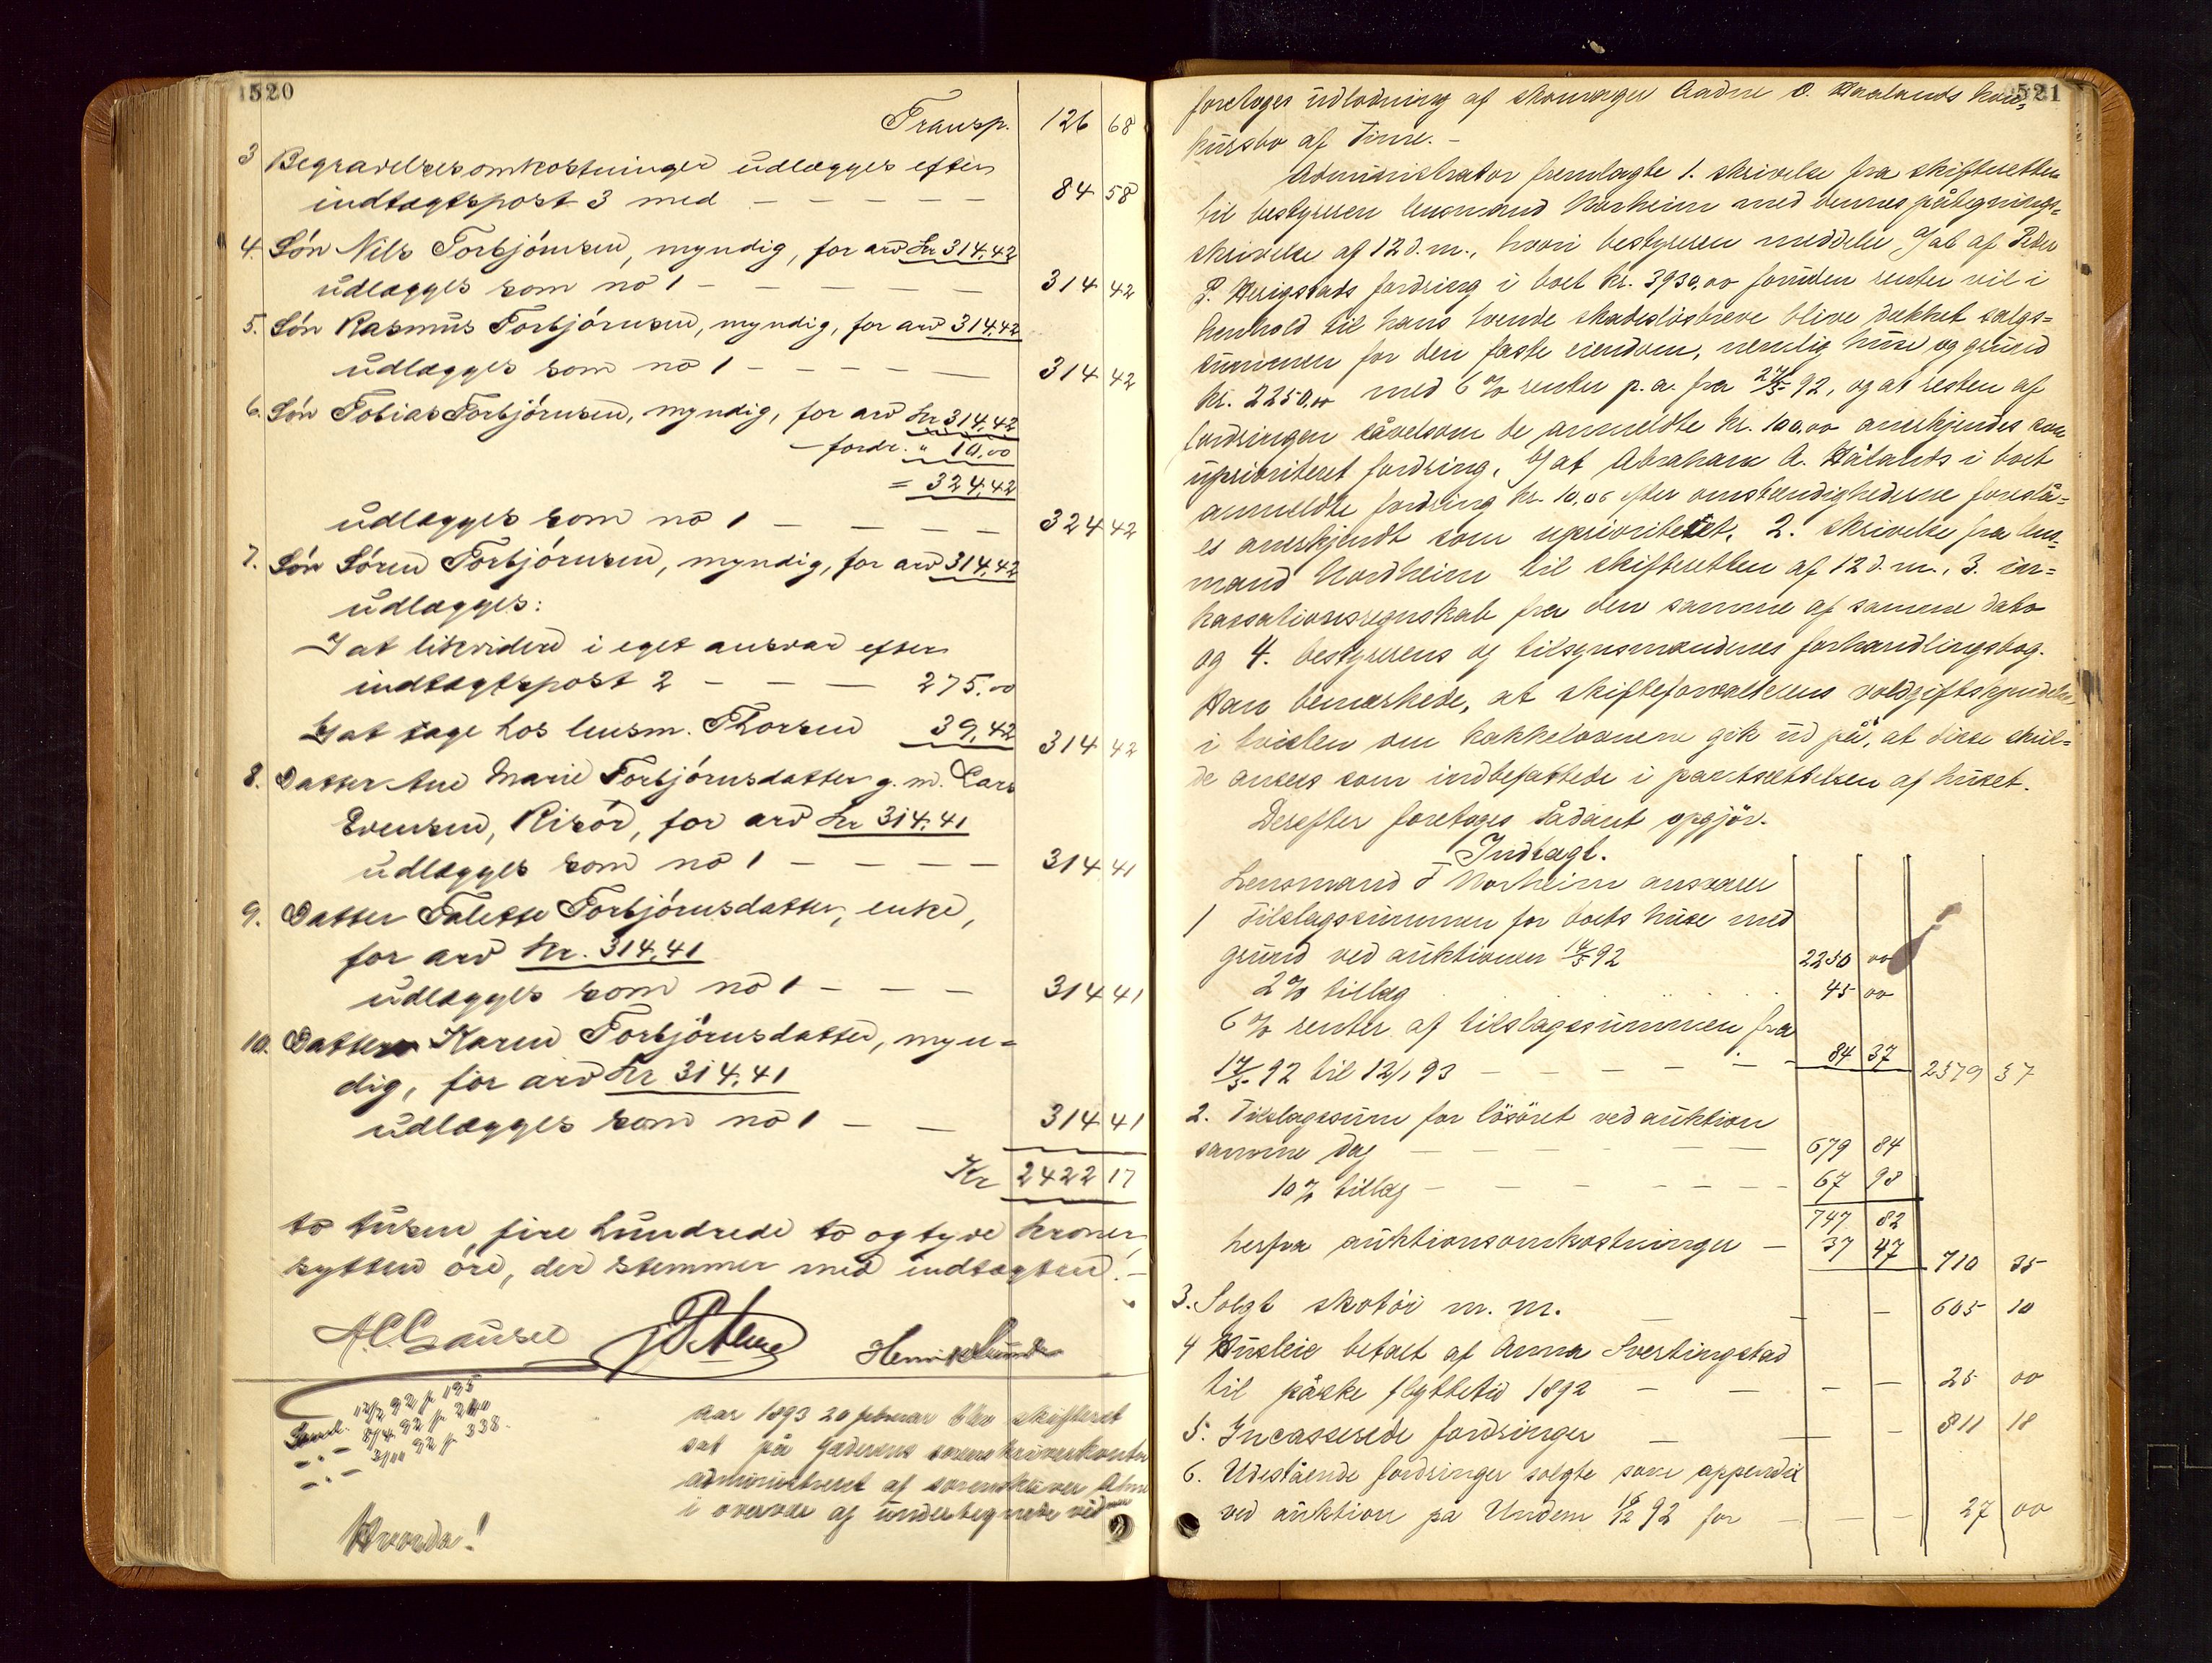 520
Transp. 126 68
3 Begravelsesomkostninger udlægges efter
indtægtspost 3 med — — — — — 84 58
4. Sön Nils Torbjörnsen, myndig, for arv Kr 314,42
udlægges som no 1 — — — — — 314 42
5. Sön Rasmus Torbjörnsen, myndig, for arv 314,42
udlægges som no 1 — — — — — 314 42
6. Sön Tobias Torbjörnsen, myndig, for arv Kr 314,42
— fordr. " 10,00
= 324,42
udlægges som no 1 — — — — 324 42
7. Sön Sören Torbjörnsen, myndig, for arv 314,42
udlægges:
I at likvidere i eget ansvar efter
indtægtspost 2 — — — 275.00
II at tage hos lensm. Thorsen 39,42 314 42
8. Datter Ane Marie Torbjörnsdatter g. m. Lars
Evensen, Risör, for arv Kr 314,41
udlægges som no 1 — — — — 314 41
9. Datter Talette Torbjörnsdatter, enke,
for arv Kr. 314,41
udlægges som no 1 — — — 314 41
10. Datter Karen Torbjörnsdatter, myn=
dig, for arv Kr 314,41
udlægges som no 1 — — 314 41
Kr 2422 17
to tusen fire hundrede to og tyve kroner
sytten öre, der stemmer med indtægten. —
12/2 92 p. 195
8/4 92 p. 240
— " — 3/11 92 p. 338.
Aar 1893 20 februar blev skifteret
sat på Jæderens sorenskriverkontor
administreret af sorenskriver
i overvær af undertegnede vidner
Hvorda!
521
foretoges udlodning af skomager Aadne O. Haalands kon=
kursbo af Time. —
Administrator fremlagte 1. skrivelse fra skifteretten
til bestyreren lensmand Norheim med dennes påtegnings=
skrivelse af 12 d. m., hvori bestyreren meddeler, I at af Peder
P. Herigstads fordring i boet kr. 3930,00 foruden renter vil i
henhold til hans tvende skadeslösbreve blive dækket salgs=
summen for den faste eiendom, nemlig huse og grund
kr. 2250,00 med 6 % renter p. a. fra 24/5 92, og at resten af
fordringen såvelsom de anmeldte kr. 100,00 anerkjendes som
uprioriteret fordring, II at Abraham A. Hålands i boet
anmeldte fordring kr. 10,00 efter omstændighederne foreslå=
es anerkjendt som uprioriteret, 2. skrivelse fra lens=
mand Nordheim til skifteretten af 12 d. m., 3. in=
kassationsregnskab fra den samme af samme dato
og 4. bestyrerens og tilsynsmændenes forhandlingsbog.
Han bemærkede, at skifteforvalterens voldgiftskjendelse
i tvisten om kakkelovnene gik ud på, at disse skul=
de ansees som indbefattede i pantsættelsen af huset.
Derefter foretoges sådant opgjör.
Indtægt.
Lensmand T Norheim ansvarer
1 Tilslagssummen for boets huse med
grund ved auktionen 14/5 92 2250 00
2 % tillæg 45 00
6 % renter af tilslagssummen fra
14/5 92 til 12/1 93 — — — — — 84 37 2379 37
2. Tilslagssum for lösöret ved auktion
samme dag — — — — — — 679 84
10 % tillæg — — — — — — 67 98
747 82
herfra auktionsomkostninger — 37 47 710 35
3. Solgt skotöi m. m. — — 605 10
4 Husleie betalt af Anna Svertingstad
til påske flyttetid 1892 — — — — 25 00
5. Incasserede fordringer — — — 811 18
6. Udestående fordringer solgte som appendix
ved auktion på Undem 92 for — — — 27 00